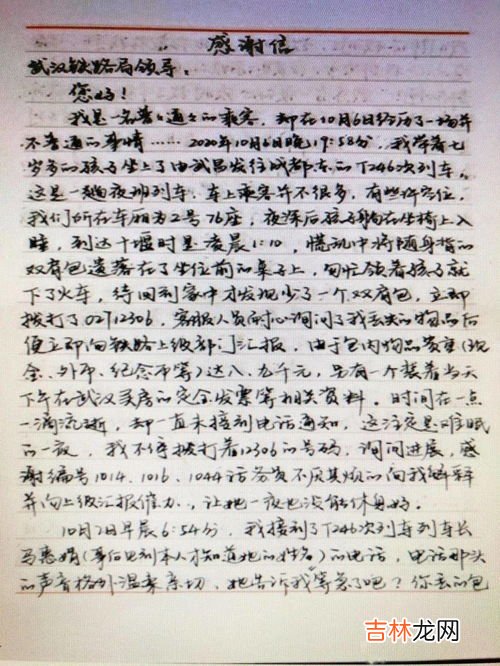 感谢信
武汉铁路局领导：
您好！
我是一名普之通之的乘客，却在10月6日经历了一场并
不普通的事情……2020年10月6日晚19:58分，我带着七
岁多的孩子坐上了由武昌发往成都东的T246次列车，
这是一趟夜班列车，车上乘客并不很多，有些许空位，
我们所在车厢为2号76座，夜深后孩子躺在坐椅上入
睡，到达十堰时是凌晨1:10，慌乱中将随身背的
双肩包遗落在了坐位前的桌子上，匆忙领着孩子就
下了火车，待回到家中才发现少了一个双肩包，立即
拨打了02712306，客服人员耐心询问了我丢失的物品后
便立即向铁路上级部门汇报，由于包内物品贵重（现
金、外币、纪念币等）达八、九千元，另有一个装着当天
下午在武汉买房的定金发票等相关资料。时间在一点
一滴流逝，却一直未接到电话通知，这注定是难眠
的一夜，我不停拨打着12306的号码，询问进展，感
谢编号1014、1016、1044话务员不厌其烦的向我解释
并向上级汇报催办，让她一夜也没能休息好。
10月7日早晨6:54分，我接到了T246次列车列车长
马惠娟（事后电到本人才知道她的姓名）的电话，电话那头
的声音格外温柔亲切，她告诉我等急了吧？你丢的包
吉林龙网